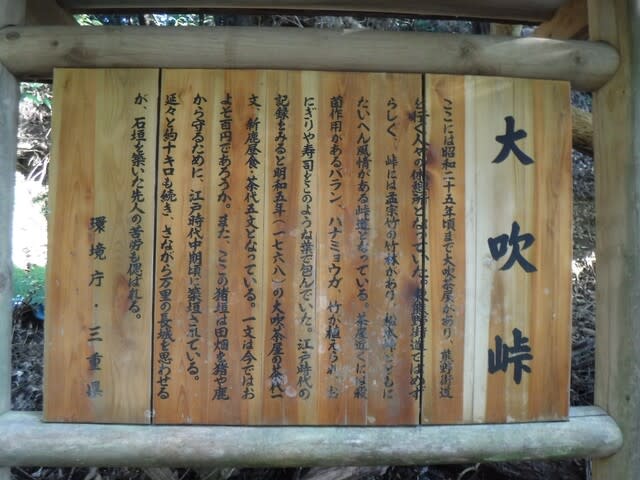 大吹峠
ここには昭和二十五年頃まで大吹茶屋があり、熊野街道
を行く人々の休憩所となっていた。熊野街道ではめず
らしく、峠には孟宗竹の竹林があり、ともに
たいへん風情がある峠道となっている。茶屋近くには殺
菌作用があるバラン、ハナミョウガ、竹が植えられ、お
にぎりや寿司をこのような葉で包んでいた。江戸時代の
記録をみると明和五年(一七六八)の大吹茶屋の茶代一
文、新鹿昼食・茶代五文となっている。一文は今ではおお
よ七百円であろうか。また、ここの猪垣は田畑を猪や鹿
から守るために、江戸時代中期頃に築垣されている。
延々と約十キロも続き、さながら万里の長城を思わせる
が、石垣を築いた先人の苦労も偲ばれる。
環境庁・三重県